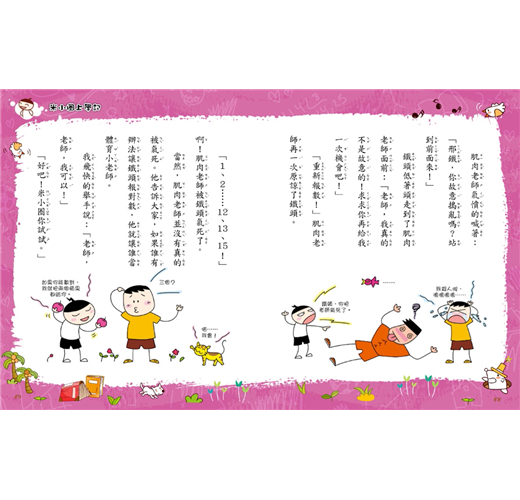 米小圈上學記
肌肉老師氣憤的喊著：
「邢鐵，你故意搗亂嗎？站
到前面來！」
鐵頭低著頭走到了肌肉
老師面前：「老師，我真的
不是故意的！求求你再給我
一次機會吧！」
「重新報數！」肌肉老
師再一次原諒了鐵頭。
「1、2……12、13、15！」
啊！肌肉老師被鐵頭氣死了。
當然，肌肉老師並沒有真的
被氣死。他告訴大家，如果誰有
辦法讓鐵頭報對數，他就讓誰當
體育小老師。
我飛快的舉手說：「老師，
我可以！」
「好吧！米小圈你試試。」
我殺人啦，
嗚嗚嗚嗚……
鐵頭，你把
老師氣死了。
三個？
呃……
我暈！